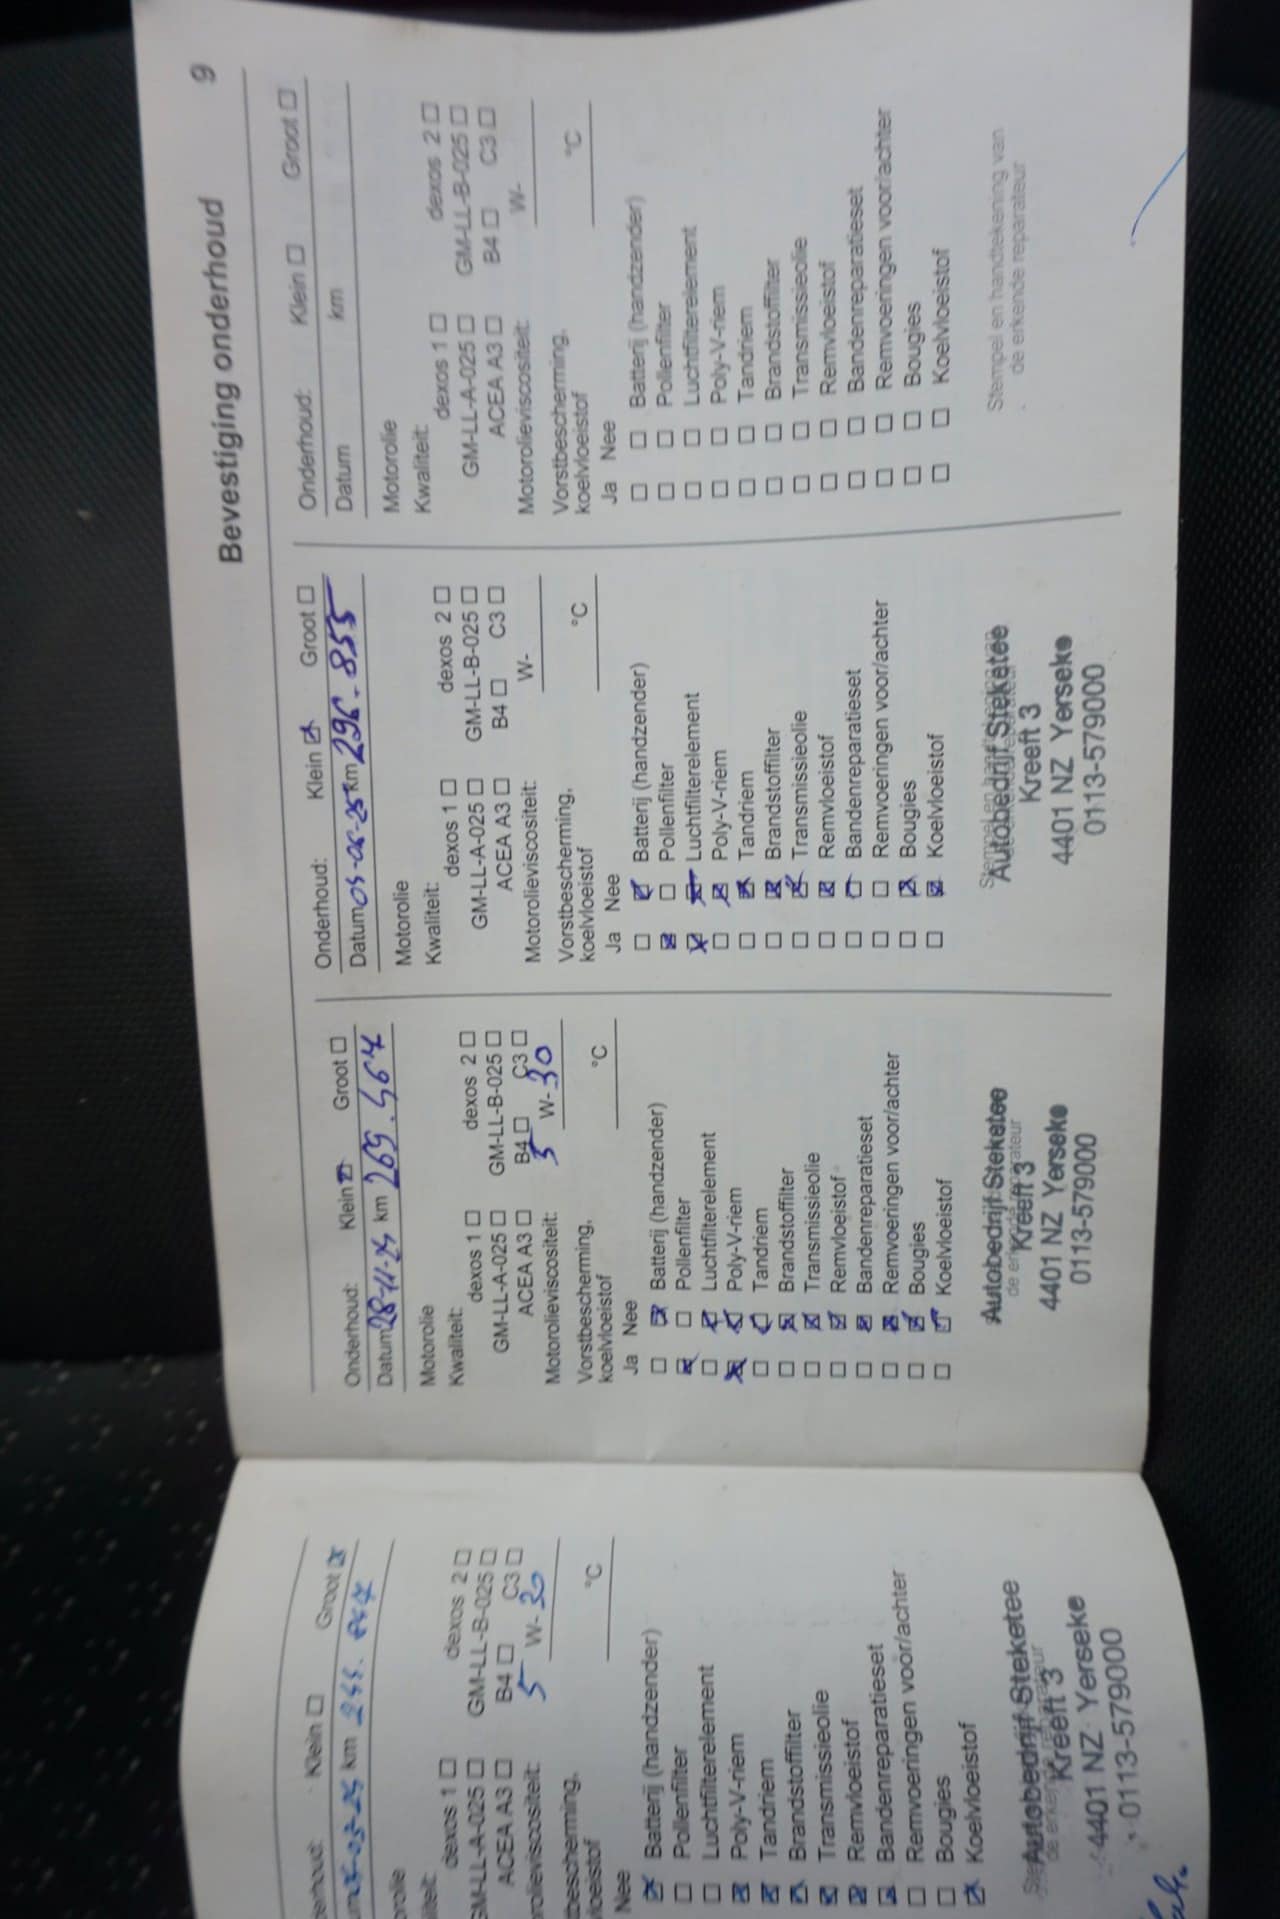 Groot
Klein
km
dexos 2
dexos 1
GM-LL-B-025
GM-LL-A-025
B4 C3
ACEA A3
5 W-30
°C
Nee
Batterij (handzender)
Pollenfilter
Luchtfilterelement
Poly-V-riem
Tandriem
Brandstoffilter
Transmissieolie
Remvloeistof
Bandenreparatieset
Remvoeringen voor/achter
Bougies
Koelvloeistof
Autobedrijf Steketee
Kreeft 3
4401 NZ Yerseke
0113-579000
Bevestiging onderhoud 9
Onderhoud: Klein Groot
Datum km 269.464
Motorolie
Kwaliteit:
dexos 1 dexos 2
GM-LL-A-025 GM-LL-B-025
ACEA A3 B4 C3
Motorolieviscositeit: 5 W-30
Vorstbescherming,
koelvloeistof °C
Ja Nee
Batterij (handzender)
Pollenfilter
Luchtfilterelement
Poly-V-riem
Tandriem
Brandstoffilter
Transmissieolie
Remvloeistof
Bandenreparatieset
Remvoeringen voor/achter
Bougies
Koelvloeistof
Autobedrijf Steketee
Kreeft 3
4401 NZ Yerseke
0113-579000
Onderhoud: Klein Groot
Datum km 296.855
Motorolie
Kwaliteit:
dexos 1 dexos 2
GM-LL-A-025 GM-LL-B-025
ACEA A3 B4 C3
Motorolieviscositeit: W-
Vorstbescherming,
koelvloeistof °C
Ja Nee
Batterij (handzender)
Pollenfilter
Luchtfilterelement
Poly-V-riem
Tandriem
Brandstoffilter
Transmissieolie
Remvloeistof
Bandenreparatieset
Remvoeringen voor/achter
Bougies
Koelvloeistof
Autobedrijf Steketee
Kreeft 3
4401 NZ Yerseke
0113-579000
Onderhoud: Klein Groot
Datum km
Motorolie
Kwaliteit:
dexos 1 dexos 2
GM-LL-A-025 GM-LL-B-025
ACEA A3 B4 C3
Motorolieviscositeit: W-
Vorstbescherming,
koelvloeistof °C
Ja Nee
Batterij (handzender)
Pollenfilter
Luchtfilterelement
Poly-V-riem
Tandriem
Brandstoffilter
Transmissieolie
Remvloeistof
Bandenreparatieset
Remvoeringen voor/achter
Bougies
Koelvloeistof
Stempel en handtekening van
de erkende reparateur